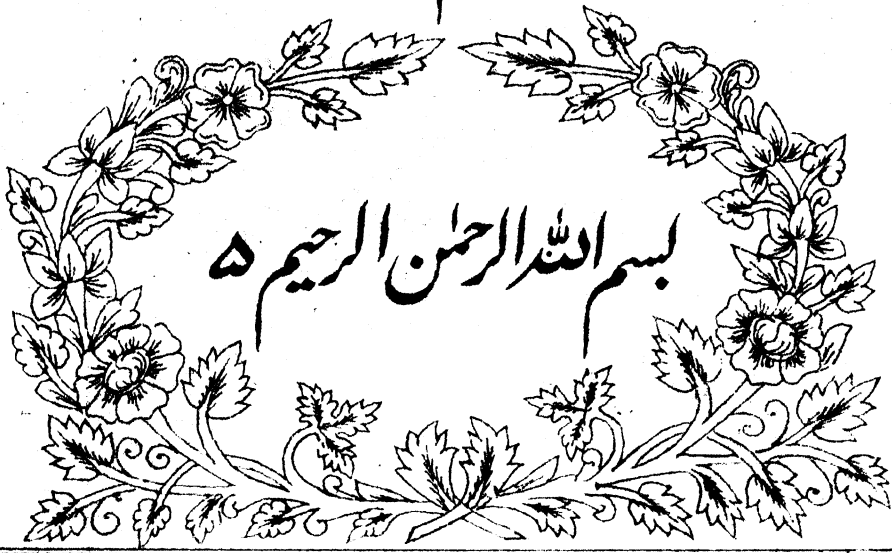 بسم اللہ الرحمٰن الرحیم ۵